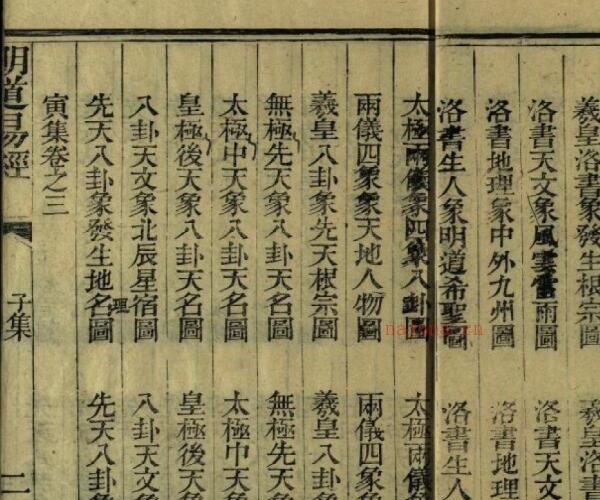 羲皇洛書象發生根宗圖
羲皇洛書
洛書天文象風雲雷雨圖
洛書天文
洛書地理象中外九州圖
洛書地理
洛書生人象明道希聖圖
洛書生人
太極兩儀象四象八卦圖
太極兩儀
兩儀四象象天地人物圖
兩儀四象
羲皇八卦象先天根宗圖
羲皇八卦
無極先天象八卦天名圖
無極先天
太極中天象八卦天名圖
太極中天
皇極後天象八卦天名圖
皇極後天
八卦天文象北辰星宿圖
八卦天文
先天八卦象發生地名圖
理
先天八卦
寅集卷之三
明道易經
子集
二
naixing.cn